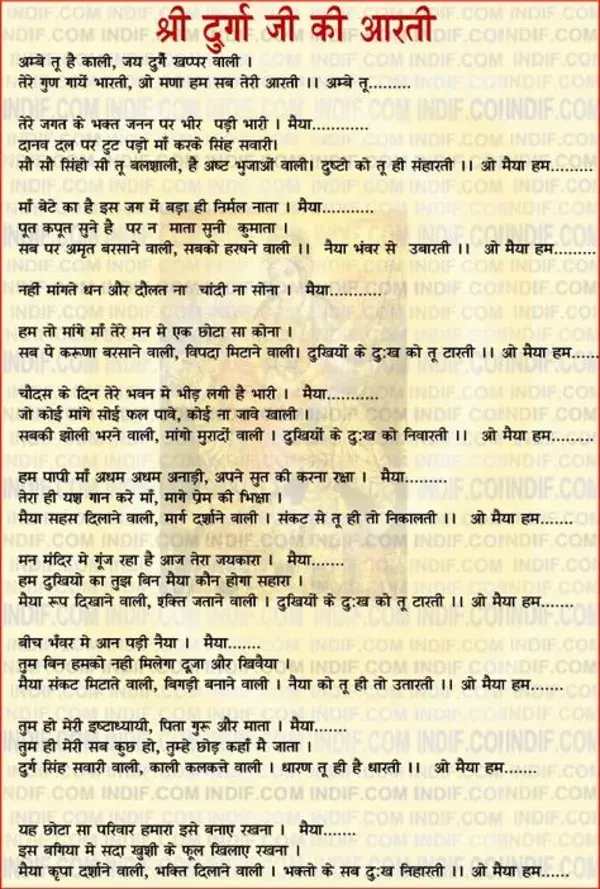 श्री दुर्गा जी की आरती
अम्बे तू है काली, जय दुर्गे खप्पर वाली ।
तेरे गुण गायें भारती, ओ मणा हम सब तेरी आरती ।। अम्बे तू.........
तेरे जगत के भक्त जनन पर भीर पड़ी भारी । मैया............
दानव दल पर टुट पड़ो माँ करके सिंह सवारी।
सौ सौ सिंहो सी तू बलशाली, है अष्ट भुजाओं वाली। दुष्टो को तू ही संहारती ।। ओ मैया हम.........
माँ बेटे का है इस जग में बड़ा ही निर्मल नाता । मैया...........
पूत कपूत सुने है पर न माता सुनी कुमाता ।
सब पर अमृत बरसाने वाली, सबको हरषने वाली ।। नैया भंवर से उबारती ।। ओ मैया हम.........
नहीं मांगते धन और दौलत ना चांदी ना सोना । मैया...........
हम तो मांगे माँ तेरे मन मे एक छोटा सा कोना ।
सब पे करूणा बरसाने वाली, विपदा मिटाने वाली। दुखियों के दु:ख को तू टारती ।। ओ मैया हम......
चौदस के दिन तेरे भवन मे भीड़ लगी है भारी । मैया...........
जो कोई मांगे सोई फल पावे, कोई ना जावे खाली ।
सबकी झोली भरने वाली, मांगो मुरादों वाली । दुखियों के दु:ख को निवारती ।। ओ मैया हम.......
हम पापी माँ अधम अधम अनाड़ी, अपने सुत की करना रक्षा । मैया.........
तेरा ही यश गान करे माँ, मागे प्रेम की भिक्षा ।
मैया सहस दिलाने वाली, मार्ग दर्शाने वाली । संकट से तू ही तो निकालती ।। ओ मैया हम.......
मन मंदिर मे गूंज रहा है आज तेरा जयकारा । मैया.......
हम दुखियो का तुझ बिन मैया कौन होगा सहारा ।
मैया रूप दिखाने वाली, शक्ति जताने वाली । दुखियों के दु:ख को तू टारती ।। ओ मैया हम.......
बीच भँवर मे आन पड़ी नैया । मैया........
तुम बिन हमको नही मिलेगा दूजा और खिवैया ।
मैया संकट मिटाने वाली, बिगड़ी बनाने वाली । नैया को तू ही तो उतारती ।। ओ मैया हम.......
तुम हो मेरी इष्टदायी, पिता गुरू और माता । मैया.......
तुम ही मेरी सब कुछ हो, तुम्हे छोड़ कहाँ मै जाता ।
दुर्ग सिंह सवारी वाली, काली कलकत्ते वाली । धारण तू ही है धारती ।। ओ मैया हम.......
यह छोटा सा परिवार हमारा इसे बनाए रखना । मैया.......
इस बगिया मे सदा खुशी के फूल खिलाए रखना
मैया कृपा दर्शाने वाली, भक्ति दिलाने वाली । भक्तो के सब दु:ख निहारती ।। ओ मैया हम.......